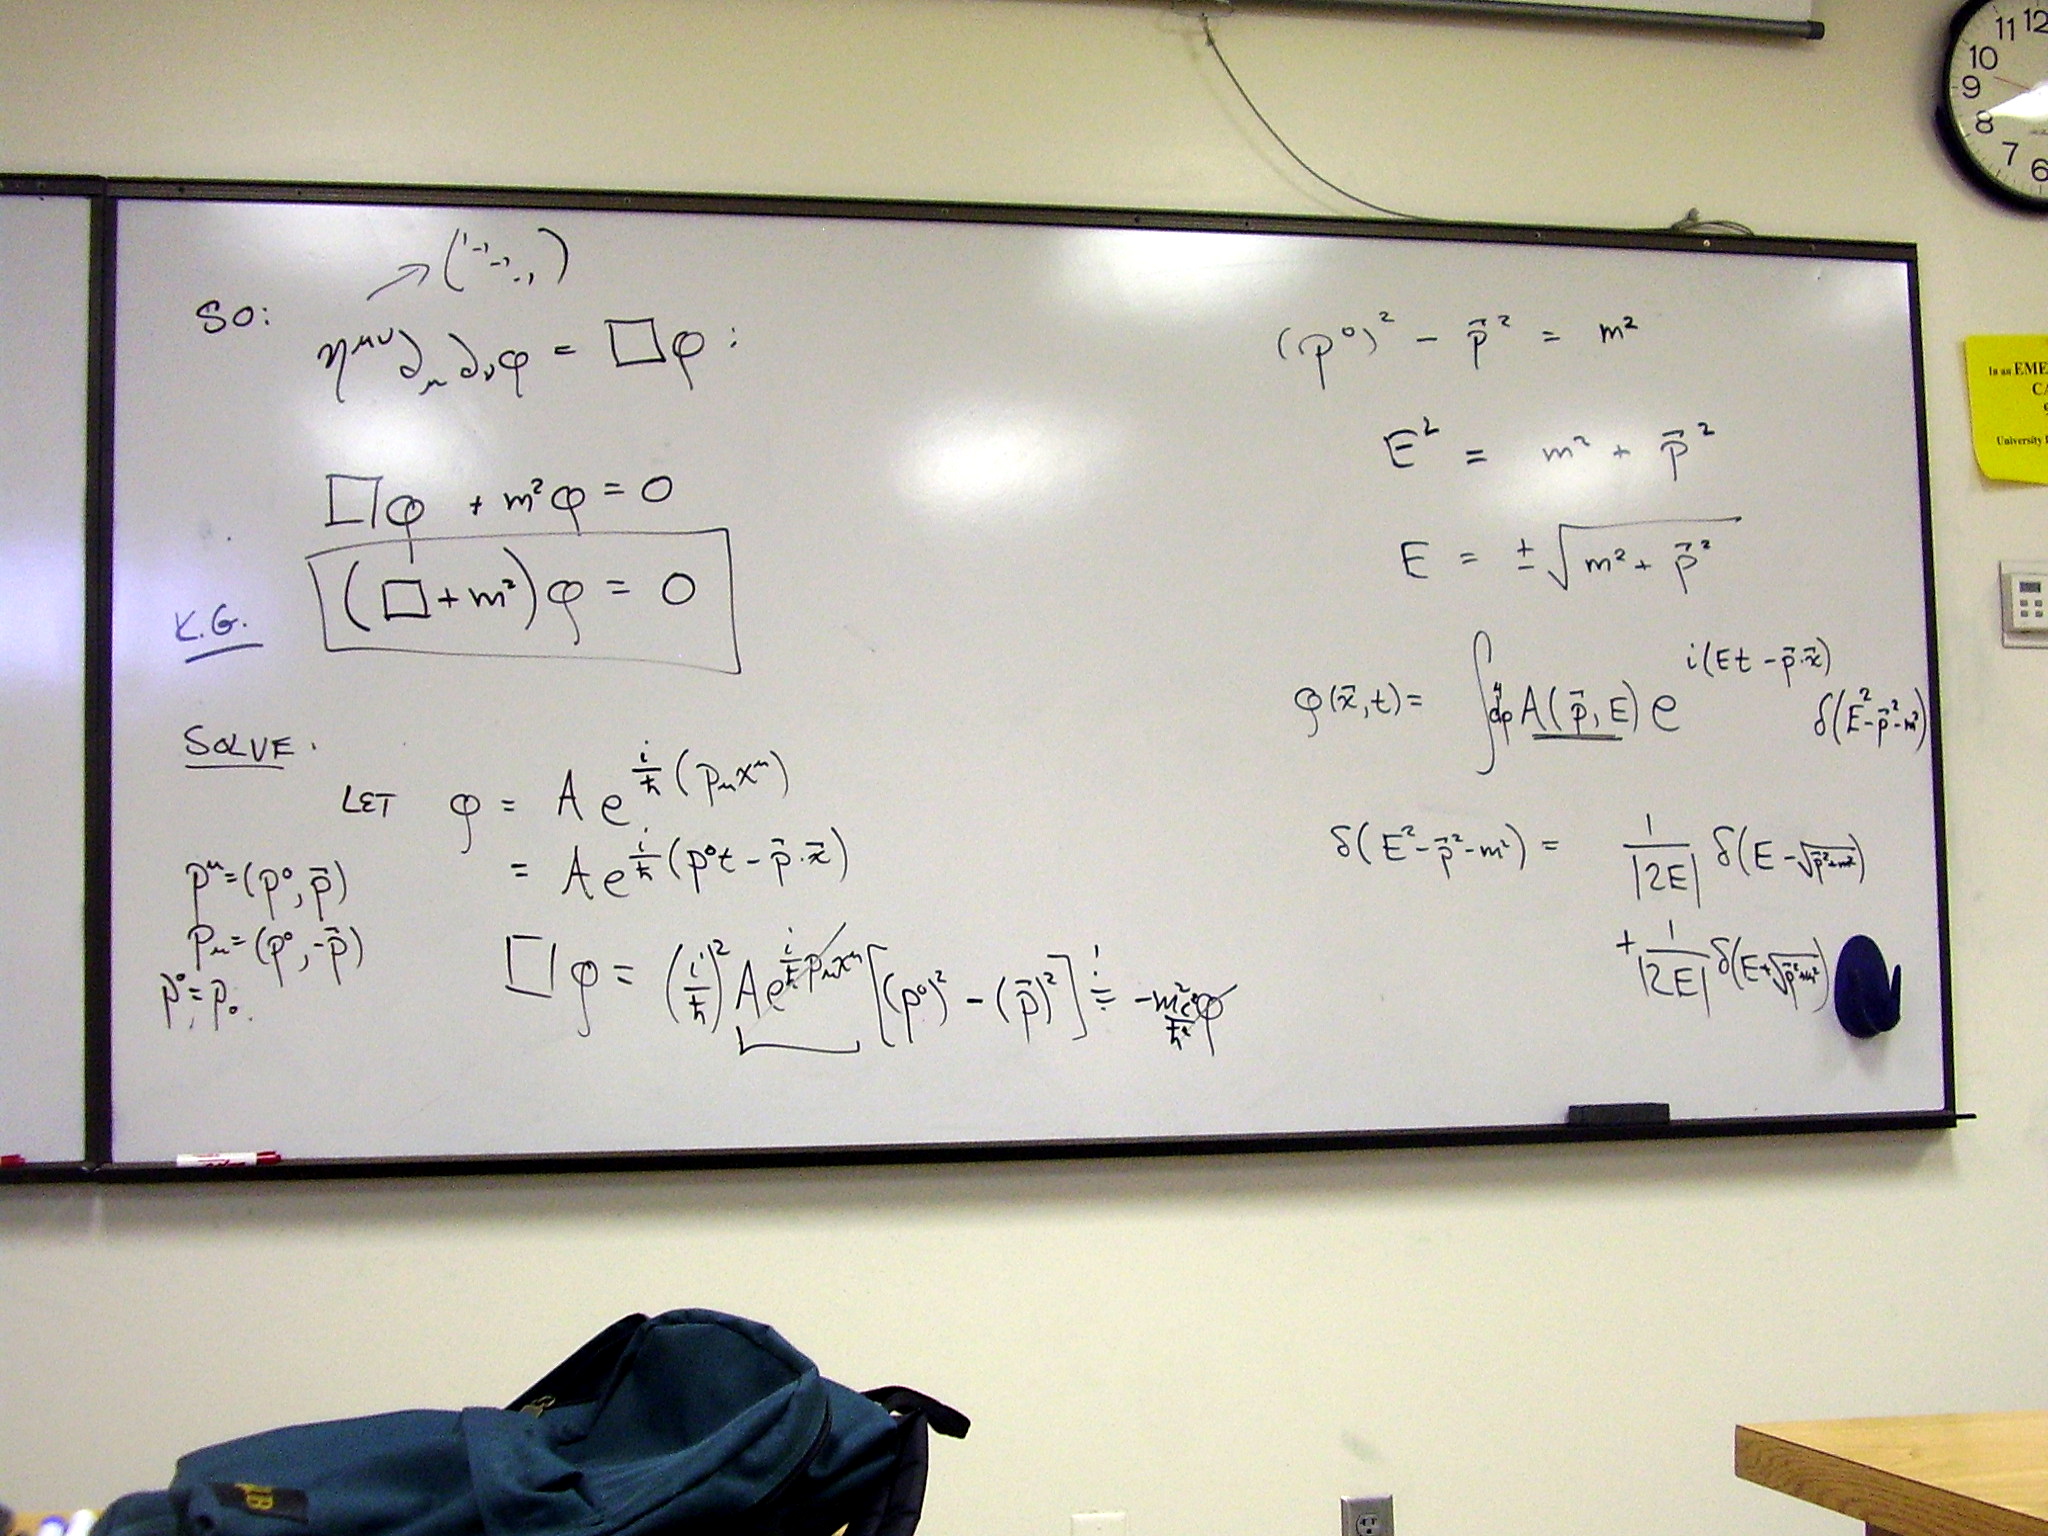 (1 -1 -1 -1)
SO:
η^{μν} ∂_μ ∂_ν φ = □φ :
□φ + m² φ = 0
K.G.
(□ + m²) φ = 0
SOLVE.
LET φ = A e^{i/ħ (p_μ x^μ)}
= A e^{i/ħ (p⁰t - p⃗·x⃗)}
p^μ = (p⁰, p⃗)
p_μ = (p⁰, -p⃗)
p⁰ = p₀.
□φ = (i/ħ)² A e^{i/ħ p_μ x^μ} [(p⁰)² - (p⃗)²] =! -m²c²/ħ² φ
(p⁰)² - p⃗² = m²
E² = m² + p⃗²
E = ± √(m² + p⃗²)
φ(x⃗, t) = ∫ d⁴p A(p⃗, E) e^{i(Et - p⃗·x⃗)} δ(E² - p⃗² - m²)
δ(E² - p⃗² - m²) = 1/|2E| δ(E - √(p⃗² + m²))
+ 1/|2E| δ(E + √(p⃗² + m²))
11 12
10
9
8
7
6
In an EME
CA
9
University